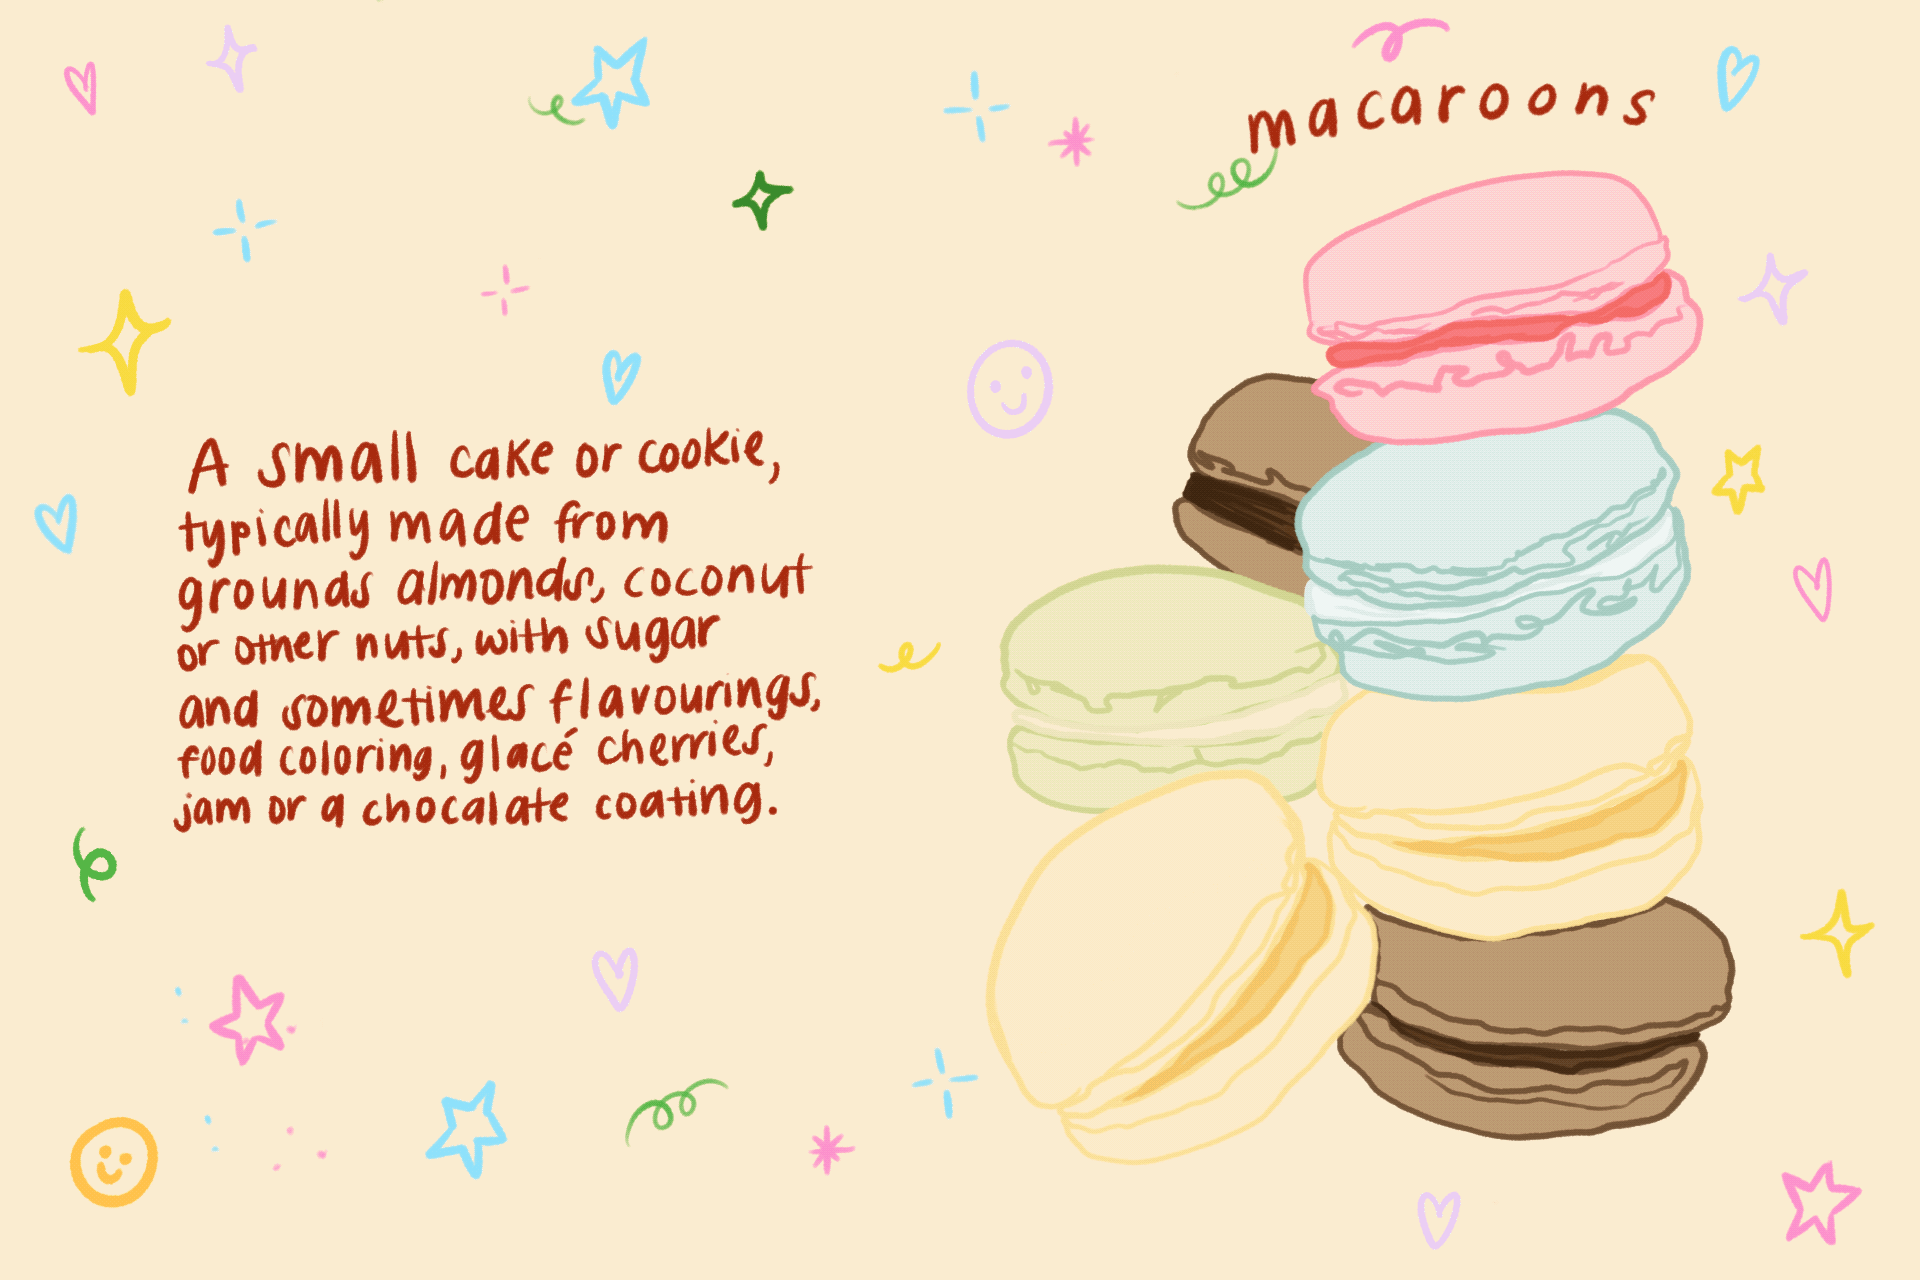 macaroons
A small cake or cookie,
typically made from
grounds almonds, coconut
or other nuts, with sugar
and sometimes flavourings,
food coloring, glacé cherries,
jam or a chocalate coating.